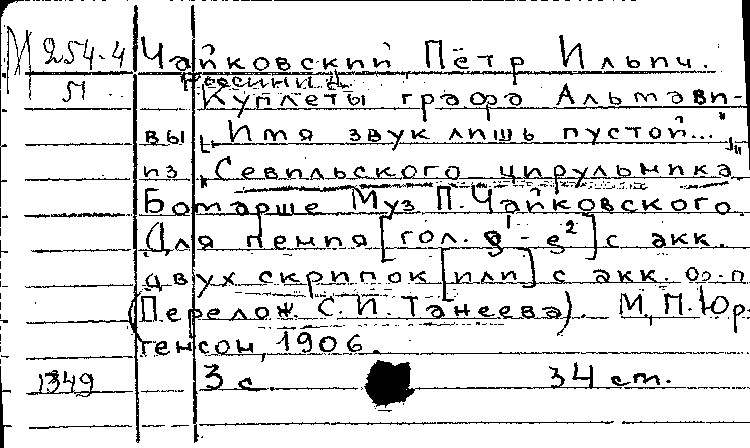 М 254-4 Чайковский Пётр Ильич.
51
Куплеты графа Альмави-
вы „Имя звук лишь пустой..."
из „Севильского цирульника"
Бомарше Муз П. Чайковского.
Для пения [гол. g¹-g²] с акк.
двух скрипок [или] с акк. ф-п
(Перелож. С. И. Танеева). М, П. Юр-
генсон, 1906.
1349 3 с. 34 см.